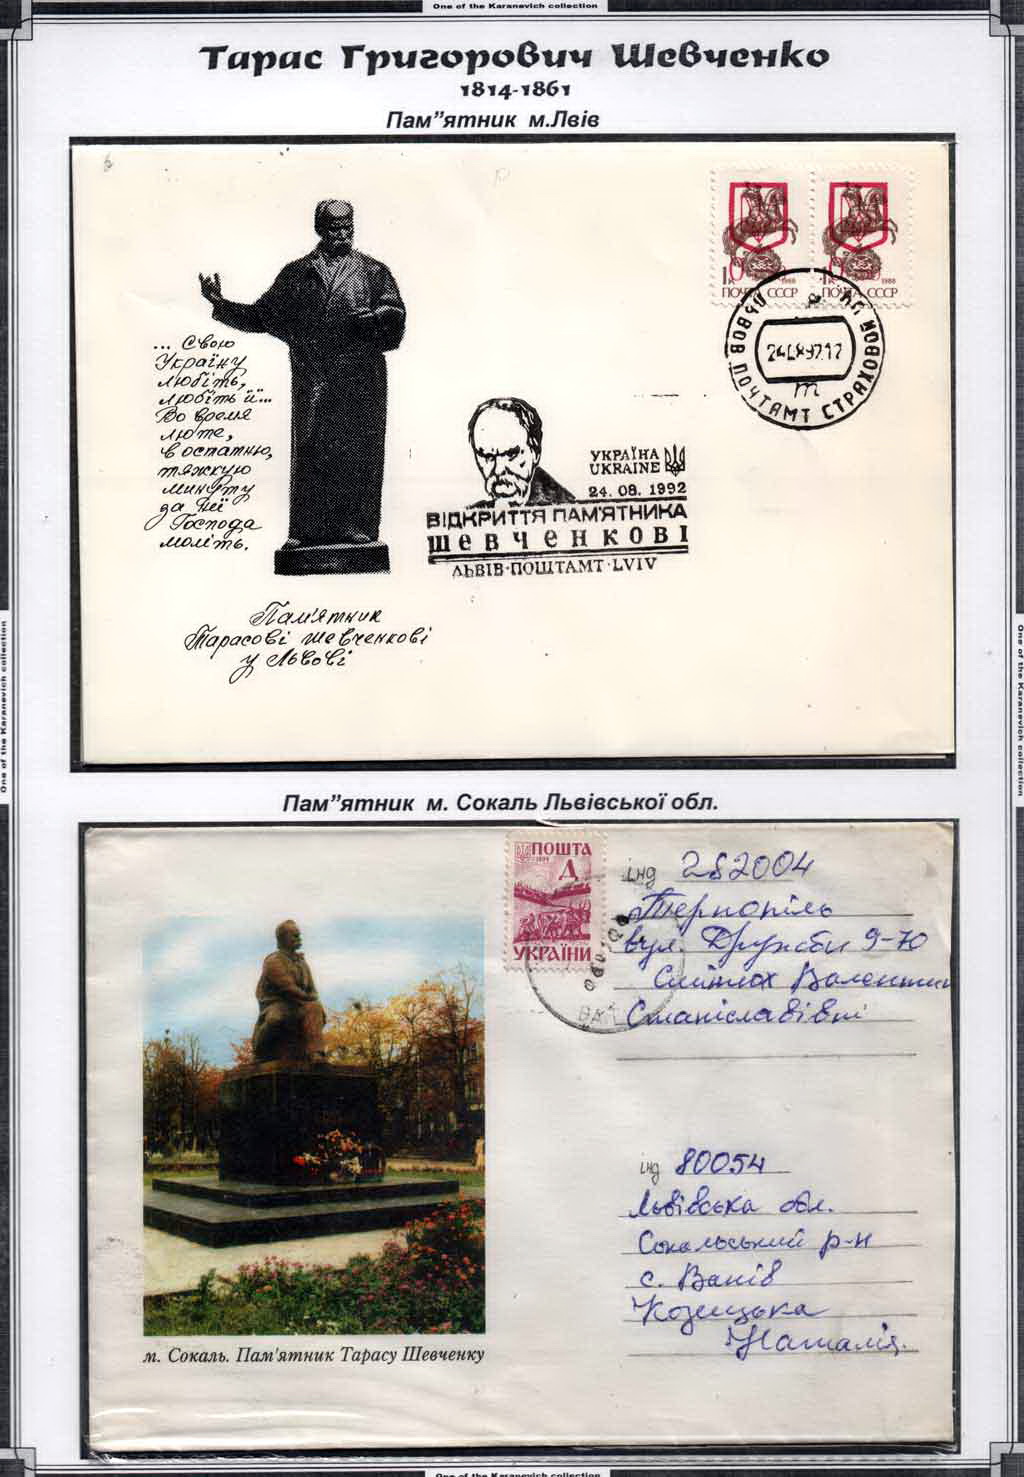 One of the Karanevich collection
Тарас Григорович Шевченко
1814-1861
Пам”ятник м.Лвів
... Свою
Україну
любіть,
любіть її...
Во время
люте,
в остатню,
тяжкую
минуту
за неї
Господа
моліть.
ПОЧТА СССР
ПОЧТА СССР
ЛЬВОВ ПОЧТАМТ СТРАХОВОЙ
УКРАЇНА
UKRAINE
24. 08. 1992
ВІДКРИТТЯ ПАМ'ЯТНИКА
ШЕВЧЕНКОВІ
ЛЬВІВ·ПОШТАМТ·LVIV
Пам'ятник
Тарасові Шевченкові
у Львові
Пам”ятник м. Сокаль Львівської обл.
ПОШТА
Д
УКРАЇНИ
інд 282004
Тернопіль
вул. Дружби 9-70
Станіславівні
інд 80054
Львівська обл.
Сокальський р-н
с. Ванів
Козицька
Наталія.
м. Сокаль. Пам'ятник Тарасу Шевченку
One of the Karanevich collection
One of the Karanevich collection
One of the Karanevich collection